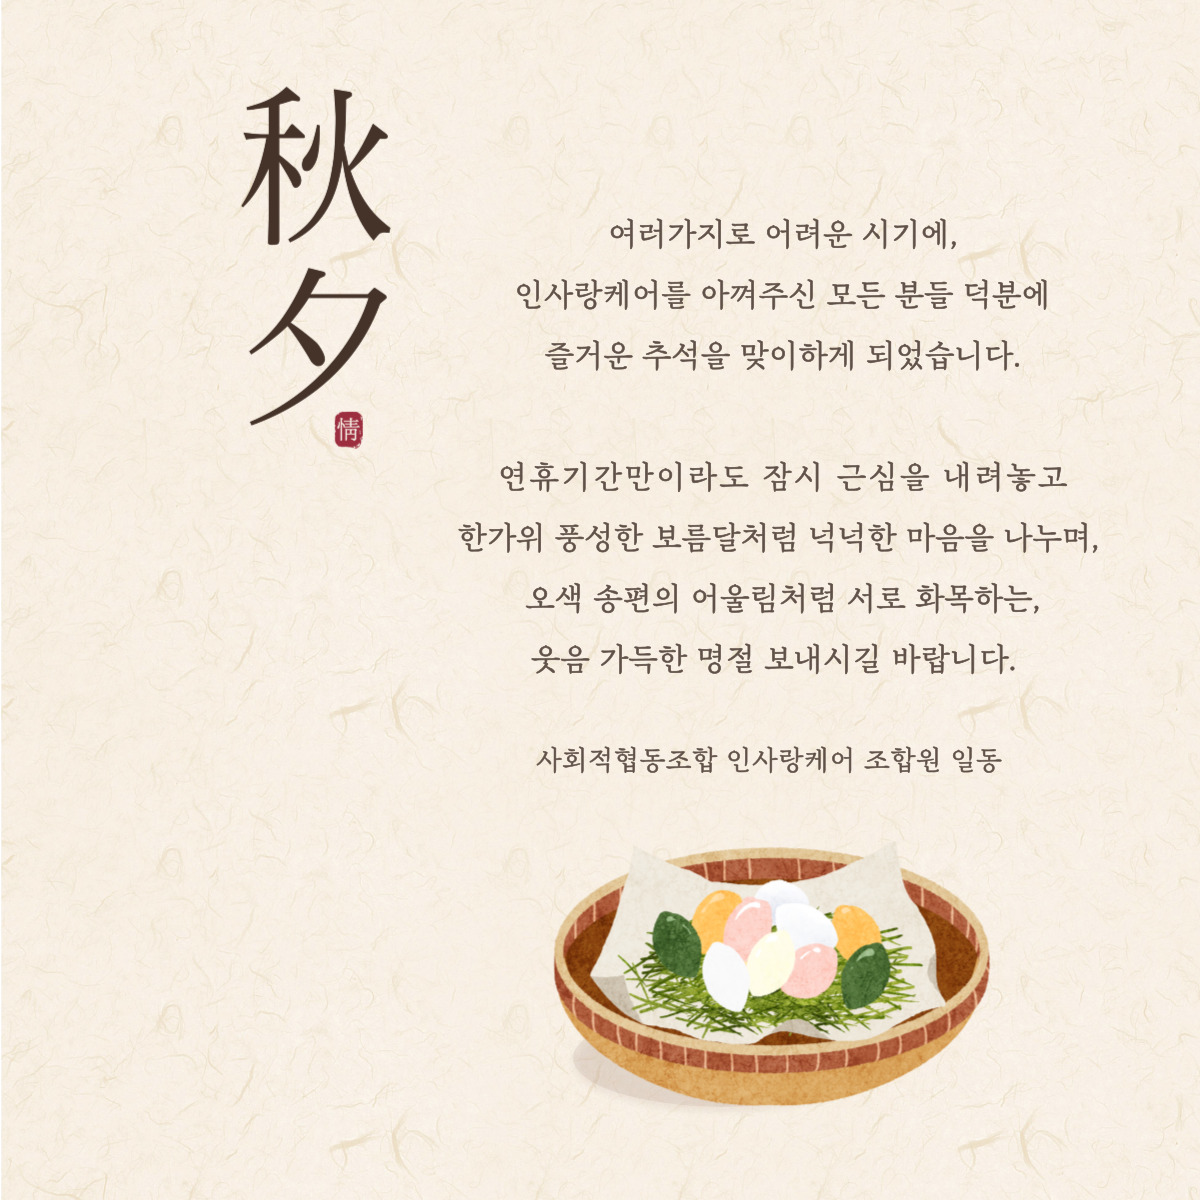 秋夕
情
여러가지로 어려운 시기에,
인사랑케어를 아껴주신 모든 분들 덕분에
즐거운 추석을 맞이하게 되었습니다.
연휴기간만이라도 잠시 근심을 내려놓고
한가위 풍성한 보름달처럼 넉넉한 마음을 나누며,
오색 송편의 어울림처럼 서로 화목하는,
웃음 가득한 명절 보내시길 바랍니다.
사회적협동조합 인사랑케어 조합원 일동